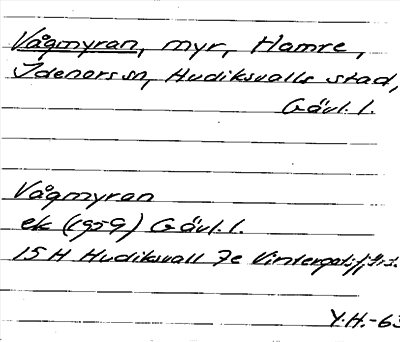 Vågmyran, myr, Hamre,
Idenors sn, Hudiksvalls stad,
Gävl. l.
Vågmyran
ek (1959) Gävl. l.
15 H Hudiksvall 7e
Y.H.-63